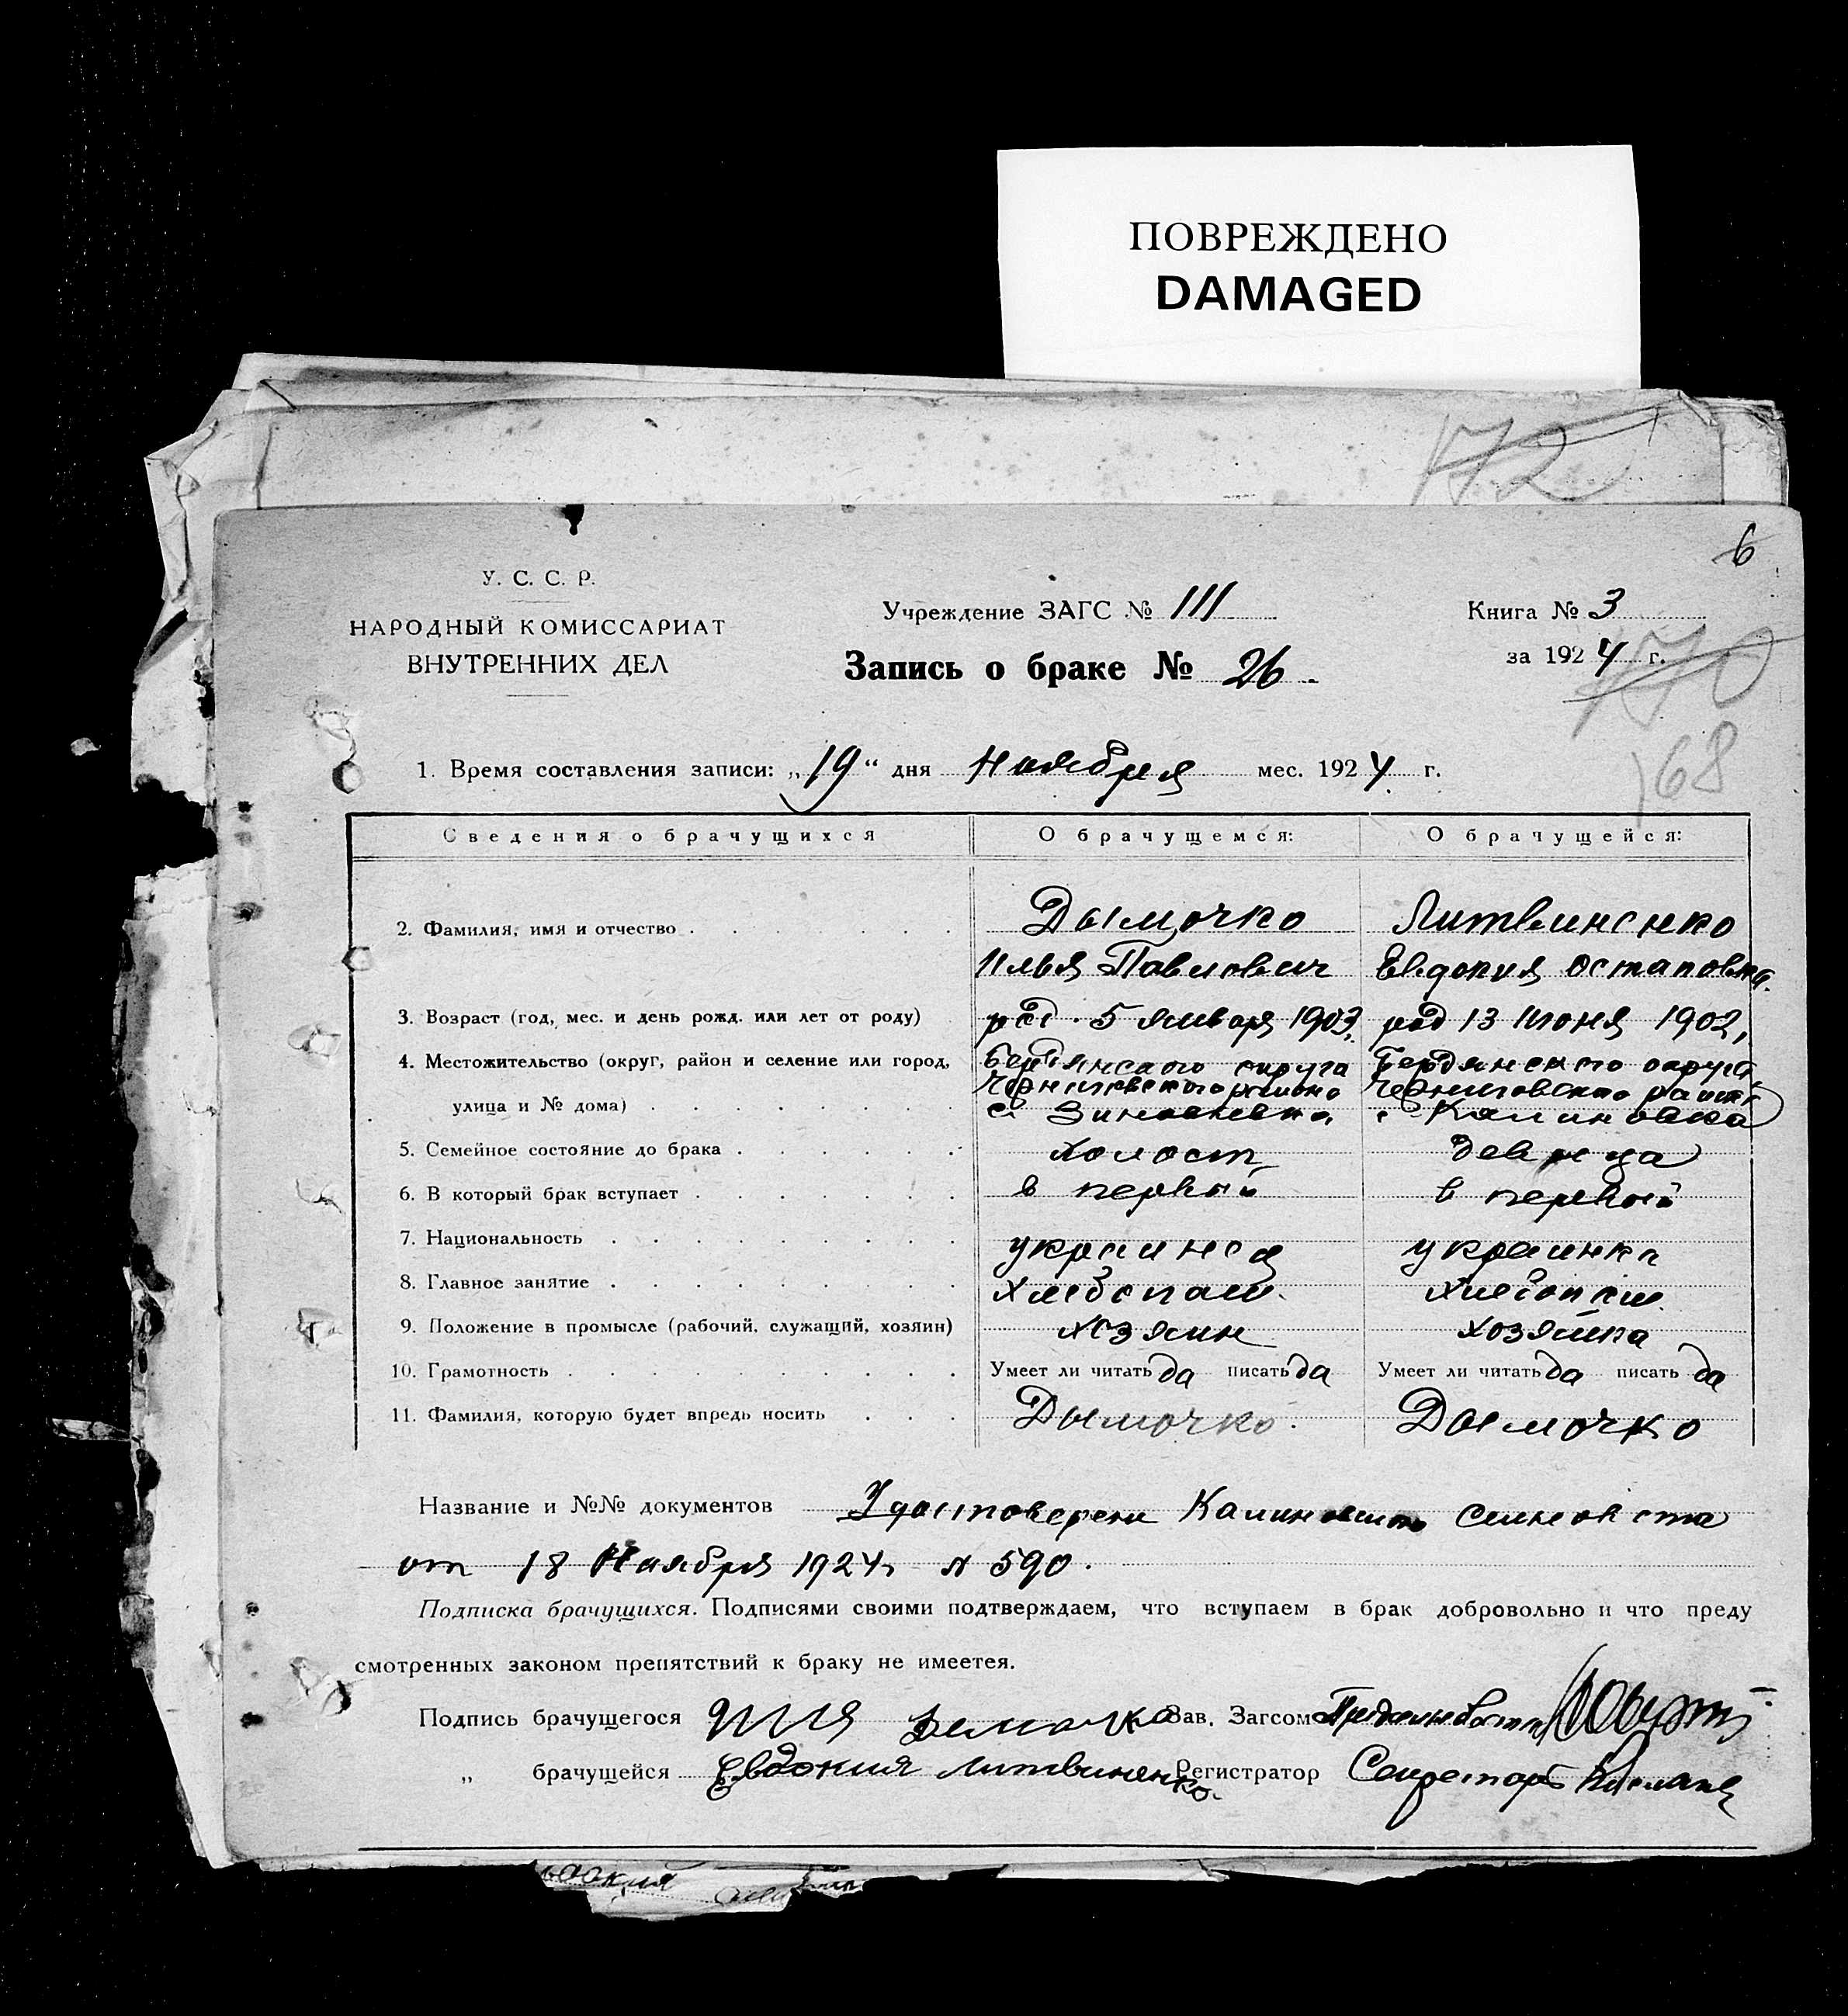 ПОВРЕЖДЕНО
DAMAGED
172
6
У. С. С. Р.
НАРОДНЫЙ КОМИССАРИАТ
ВНУТРЕННИХ ДЕЛ
Учреждение ЗАГС № 111
Запись о браке № 26
Книга № 3
за 1924 г.
170
168
1. Время составления записи: „19“ дня Ноября мес. 1924 г.
Сведения о брачущихся О брачущемся: О брачущейся:
2. Фамилия, имя и отчество Дымочко Литвиненко
Илья Павлович Евдокия Остаповна
3. Возраст (год, мес. и день рожд. или лет от роду) род. 5 января 1903 род 13 Июня 1902,
4. Местожительство (округ, район и селение или город, Бердянского округа Бердянского округа
Черниговского района Черниговского района
улица и № дома) с. с Калиновка
5. Семейное состояние до брака холост девица
6. В который брак вступает в первый в первый
7. Национальность украинец украинка
8. Главное занятие хлебопаш. хлебопаш.
9. Положение в промысле (рабочий, служащий, хозяин) хозяин хозяйка
10. Грамотность Умеет ли читать да писать да Умеет ли читать да писать да
11. Фамилия, которую будет впредь носить Дымочко Дымочко
Название и №№ документов Удостоверен Калиновского
от 18 Ноября 1924 № 590.
Подписка брачущихся. Подписями своими подтверждаем, что вступаем в брак добровольно и что преду
смотренных законом препятствий к браку не имеетея.
Подпись брачущегося Зав. Загсом
„ брачущейся Евдокия Литвиненко. Регистратор Секретарь